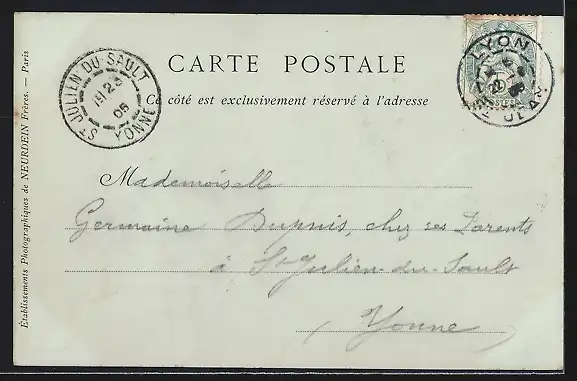 CARTE POSTALE
Ce côté est exclusivement réservé à l'adresse
ST JULIEN DU SAULT
23
05
YONNE
LYON
ST JEAN
Mademoiselle
Germaine Dupuis, chez ses Parents
à St Julien-du-Sault
Yonne
Établissements Photographiques de NEURDEIN Frères. — Paris